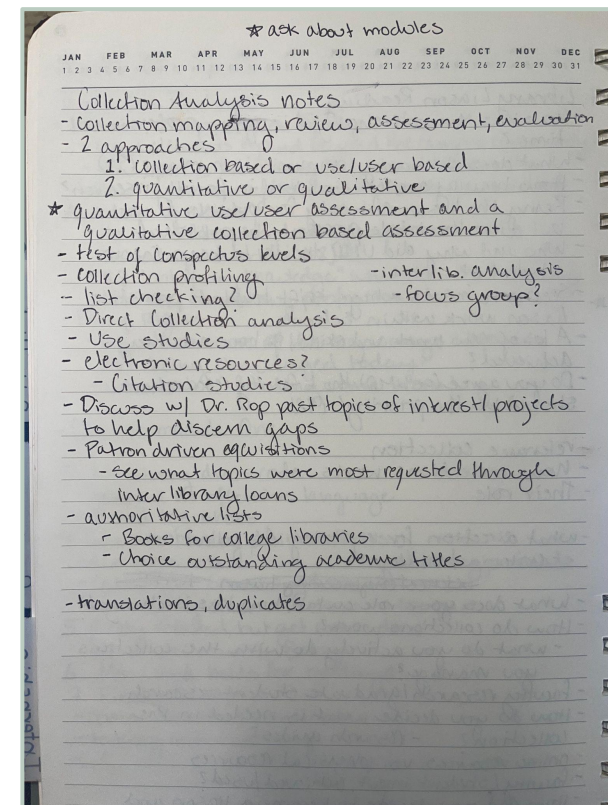 ☆ ask about modules
JAN FEB MAR APR MAY JUN JUL AUG SEP OCT NOV DEC
1 2 3 4 5 6 7 8 9 10 11 12 13 14 15 16 17 18 19 20 21 22 23 24 25 26 27 28 29 30 31
Collection Analysis notes
- collection mapping, review, assessment, evaluation
- 2 approaches
1. collection based or use/user based
2. quantitative or qualitative
☆ quantitative use/user assessment and a
qualitative collection based assessment
- test of conspectus levels
- collection profiling - interlib. analysis
- list checking? - focus group?
- Direct Collection analysis
- Use studies
- electronic resources?
- Citation studies
- Discuss w/ Dr. Rop past topics of interest/ projects
to help discern gaps
- Patron driven aquisitions
- see what topics were most requested through
inter library loans
- authoritative lists
- Books for college libraries
- Choice outstanding academic titles
- translations, duplicates